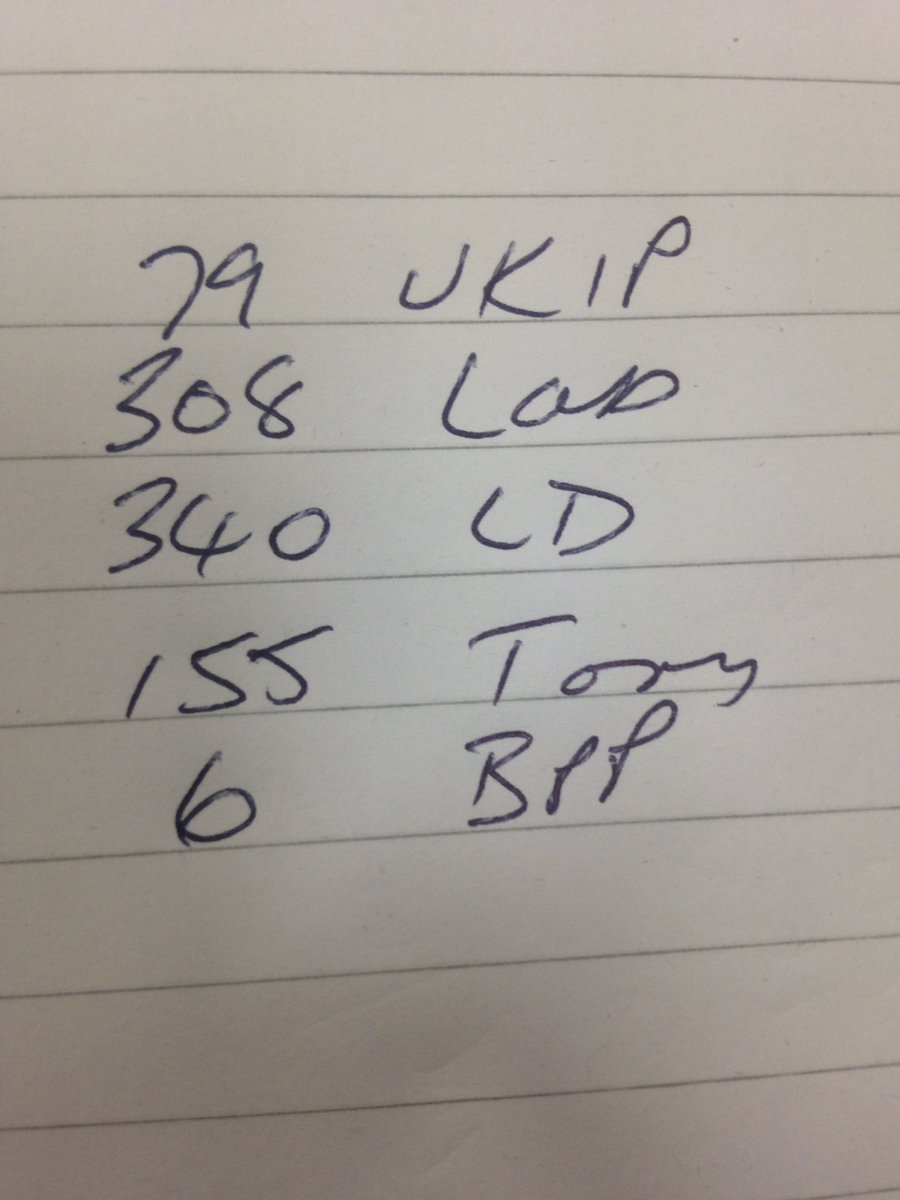 79 UKIP
308 Lab
340 LD
155 Tory
6 BPP